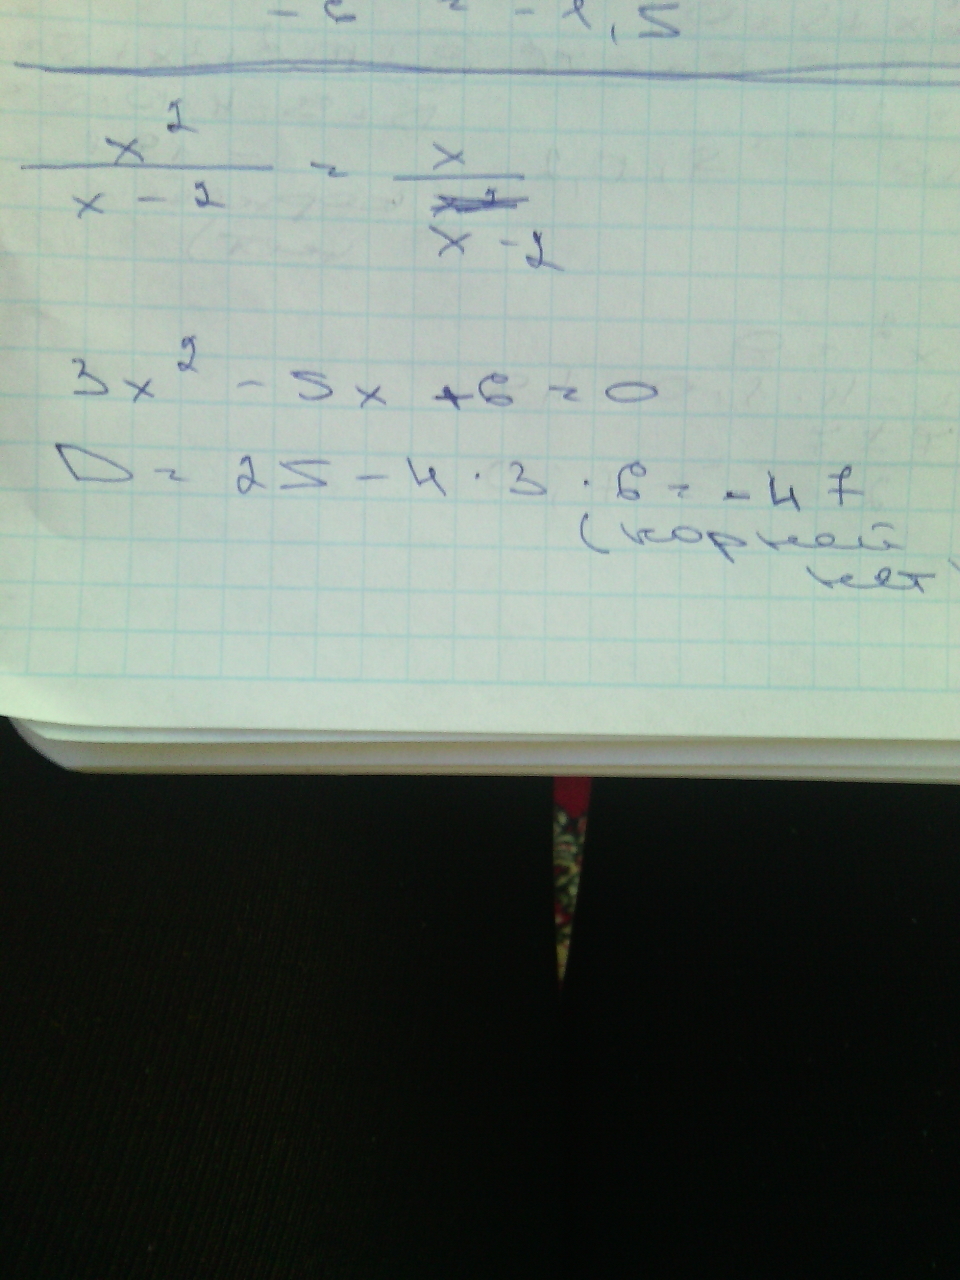 x² / x - 2 = x / x - 2
3x² - 5x + 6 = 0
D = 25 - 4 · 3 · 6 = -47
(корней
нет)